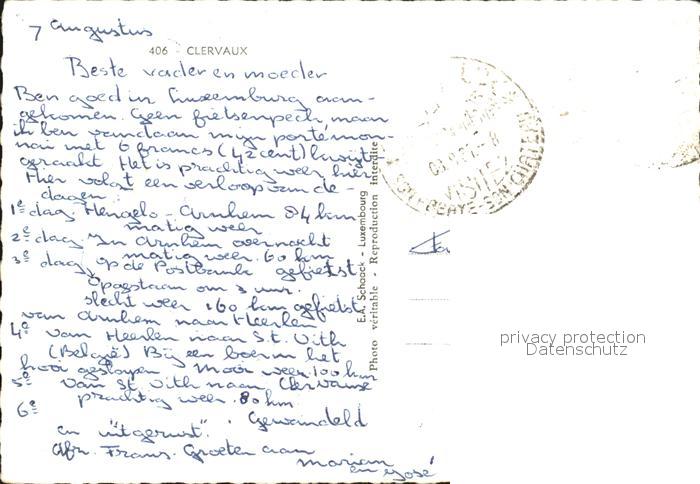 7 augustus
406 CLERVAUX
Beste vader en moeder
Ben goed in Luxemburg aan-
gekomen. Geen fietsenpech maar
ik ben vandaan mijn portémon-
nai met 6 francs (42 cent) kwijt-
geraakt Het is prachtig weer hier
Hier volgt een verloop van de-
dagen.
1e dag, Hengelo - Arnhem 84 km
matig weer
2e dag In Arnhem overnacht
matig weer. 60 km
3e dag, op de Postbank gefietst
Opgestaan om 3 uur.
slecht weer 160 km gefietst
van Arnhem naar Heerlen
4e van Heerlen naar St. Vith
(België) Bij een boer in het
hooi geslapen Mooi weer 100 km
5e van St. Vith naar Clervaux
prachtig weer. 80 km
6e Gewandeld
en "uitgerust".
Afz. Frans. Groeten aan
Marian
en José
E.A. Schaack - Luxembourg
Photo véritable - Reproduction interdite
VISITEZ
privacy protection
Datenschutz